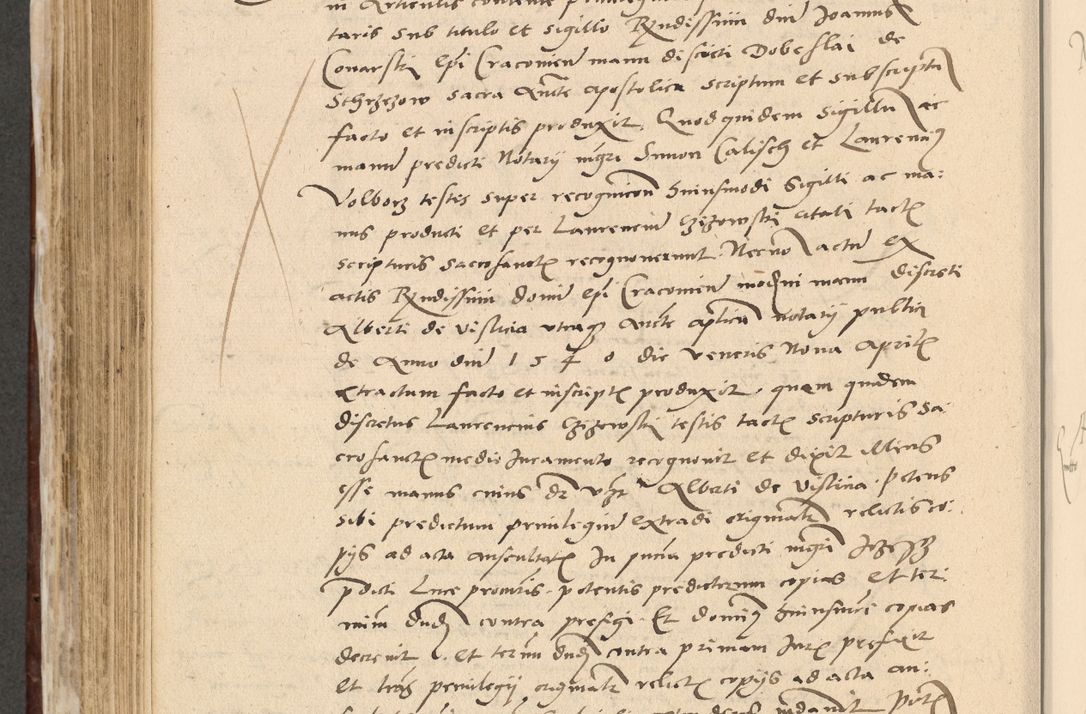 in Articulis contente
taris sub titulo et sigillo Rndissimi dni Joannis
Conarski Epi Cracovien manu discreti Dobeslai de
sacra Aucte apostolica scriptum et subscriptu
facto et inscriptis produxit, Quodquidem sigillu ac
manu predicti Notarij mgri Simon Calisch et Laurenci
Volborz testes super recognicion huiusmodi Sigilli ac ma:
nus producti et per Laurenciu citati tactis
scripturis sacrosanctis recognoverunt. Necno actu ex
actis Rndissimi domi Epi Cracovien moderni manu discreti
Alberti de Vislicia utraq aucte aplica notarij publici
de Anno dni 1540 die veneris Nona Aprilis
extractum facto et inscriptis produxit, quam quidem
discretus Laurencius testis tactis scripturis sa
crosanctis medio Juramento recognovit et dixit illius
esse manus cuius dr Alberti de Vislicia. Petens
sibi predictum privilegiu extradi originalr relictis co:
pijs ad acta auscultatis In pncia predicti mgri
pdicti Luce procuris. petentis predictorum copias et ter:
minu contra prefigi. Et dominus huiusmodi copias
decrevit. et terminu contra primam Juris prefixit
et privilegij originalr relictis copijs ad acta au: